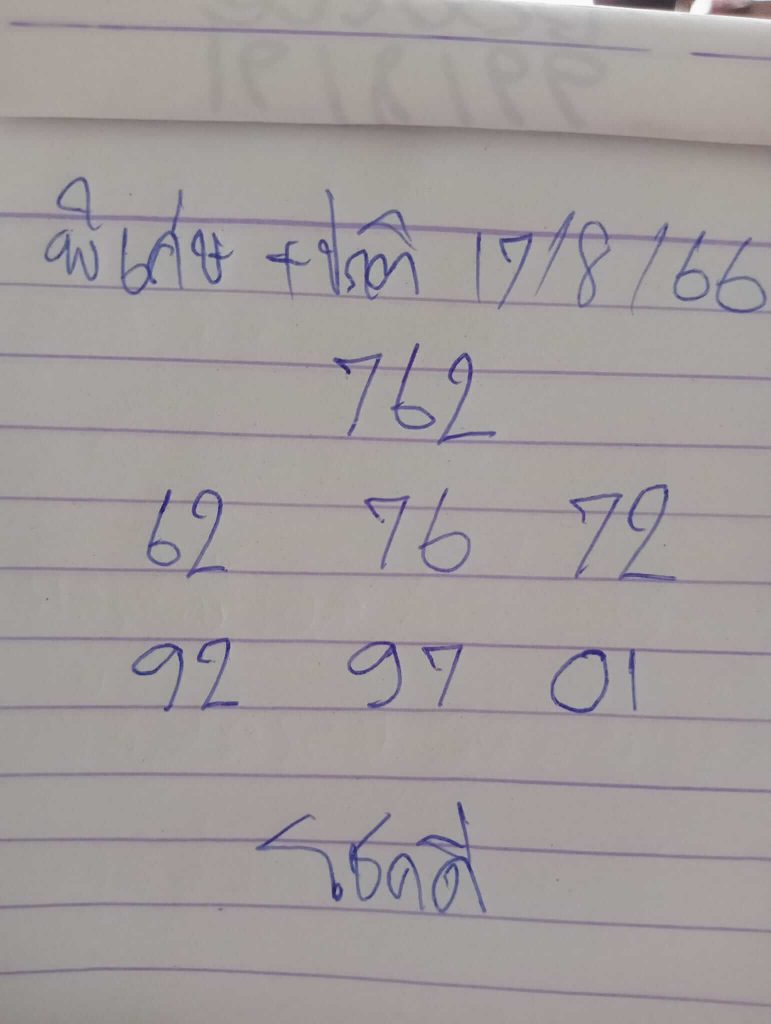 พิเศษ + ปรกติ 17/8/66
762
62 76 72
92 97 01
โชคดี